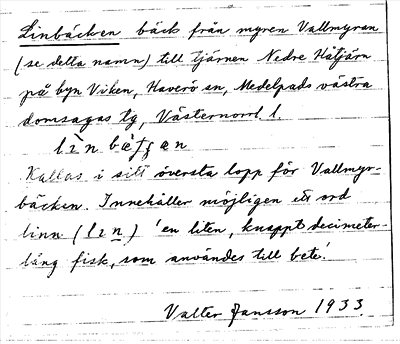 Linbäcken bäck från myren Vallmyran
(se detta namn) till tjärnen Nedre Håtjärn
på byn Viken, Haverö sn, Medelpads västra
domsagas tg, Västernorrl. l.
Kallas i sitt översta lopp för Vallmyr-
bäcken. Innehåller möjligen ett ord
linn (lın) 'en liten, knappt decimeter-
lång fisk, som användes till bete'.
Valter Jansson 1933.